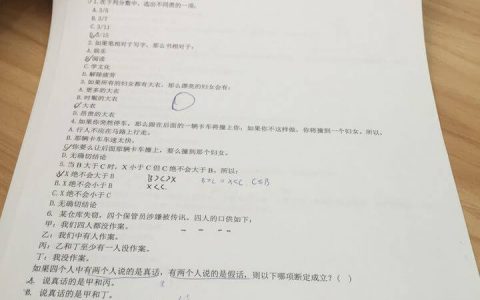 1. 在下列分数中，选出不同类的一项：
A. 3/5
B. 3/7
C. 3/11
D. 5/15
2. 如果笔相对于写字，那么书相对于：
A. 娱乐
B. 阅读
C. 学文化
D. 解除疲劳
3. 如果所有的妇女都有大衣，那么漂亮的妇女会有：
A. 更多的大衣
B. 时髦的大衣
C. 大衣
D. 昂贵的大衣
4. 如果你突然停车，那么跟在后面的一辆卡车将撞上你；如果你不这样做，你将撞到一个妇女。所以，
A. 行人不应在马路上行走。
B. 那辆卡车车速太快。
C. 你要么让后面那辆卡车撞上，要么撞到那个妇女。
D. 无确切结论
5. 当B大于C时，X小于C但C绝不会大于B，所以：
A. X绝不会大于B B>C>X
B. X绝不会小于B X<C
C. X绝不会小于C
D. 无确切结论
6. 某仓库失窃，四个保管员涉嫌被传讯。四人的口供如下：
甲：我们四人都没作案。
乙：我们中有人作案。
丙：乙和丁至少有一人没作案。
丁：我没作案。
如果四个人中有两个人说的是真话，有两个人说的是假话，则以下哪项断定成立？（ ）
A. 说真话的是甲和丙。
B. 说真话的是甲和丁。